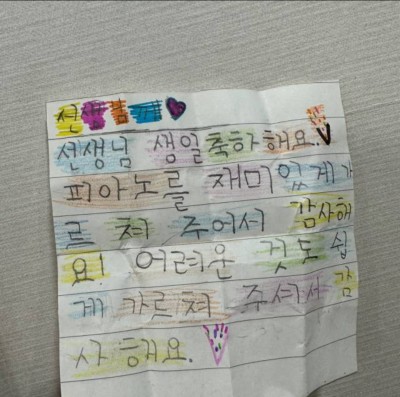 선생님께
선생님 생일 축하해요..
피아노를 재미있게 가
르쳐 주어서 감사해
요! 어려운 것도 쉽
게 가르쳐 주셔서 감
사해요.